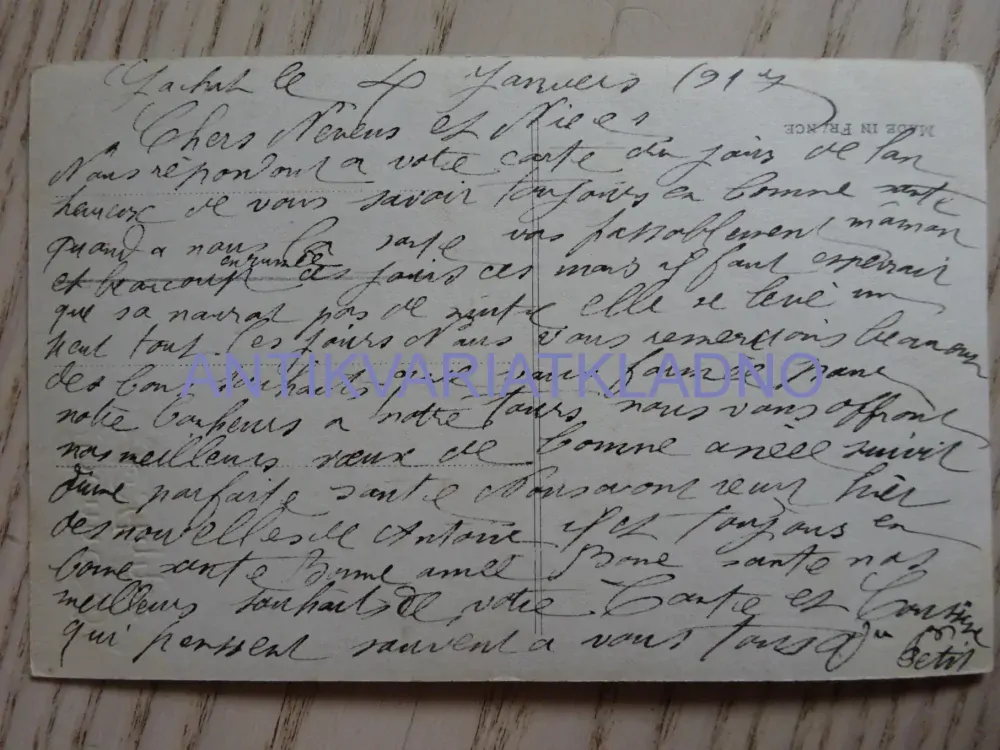 le 4 Janviers 1917
MADE IN FRANCE
Chers Neveus et Nieces
Nous répondont a votre carte du jours de lan
heureux de vous savoir toujours en bonne sante
quand a nous la sante vas passablement mâman
enrumée
et beaucoup ces jours ces mais il faut esperrair
que sa naurat pas de suite elle se levé un
peut tout les jours Nous vous remercions beaucoup
des bont souhaits que vous
notre bonheurs a notre tours nous vous offront
nos meilleurs vœux de bonne anèèe suivit
dune parfaite santé Nous avont reçut hièr
des nouvelles de Antoine il et toujours en
bone sante Bonne année Bone sante nos
meilleurs souhaits de votre Tante et Cousine
qui penssent souvent a vous tous
Petit
ANTIKVARIATKLADNO